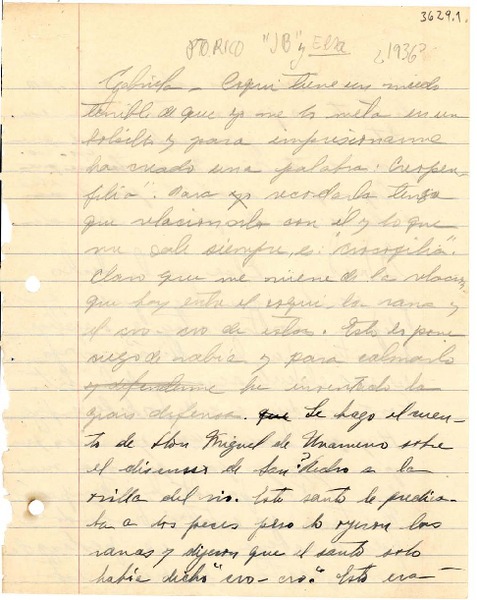 3629.1.
PTO. RICO "JB" y Elda ¿1936?
Gabriela - Coqui tiene un miedo
terrible de que yo me lo meta en un
bolsillo y para impresionarme
ha creado una palabra:
filia". Para yo recordarla tengo
que relacionarla con el y lo que
me sale siempre, es: "crocofilia".
Claro que me viene de la relación
que hay entre el coqui la rana y
el cro-cro de estas. Esto le pone
ciego de rabia y para calmarlo
y defenderme he inventado la
gran defensa. que Le hago el cuen-
to de Don Miguel de Unamuno sobre
el discurso de San? Pedro a la
orilla del rio. Este santo le predica-
ba a los peces pero lo oyeron las
ranas y dijeron que el santo solo
había dicho "cro-cro." Esto era